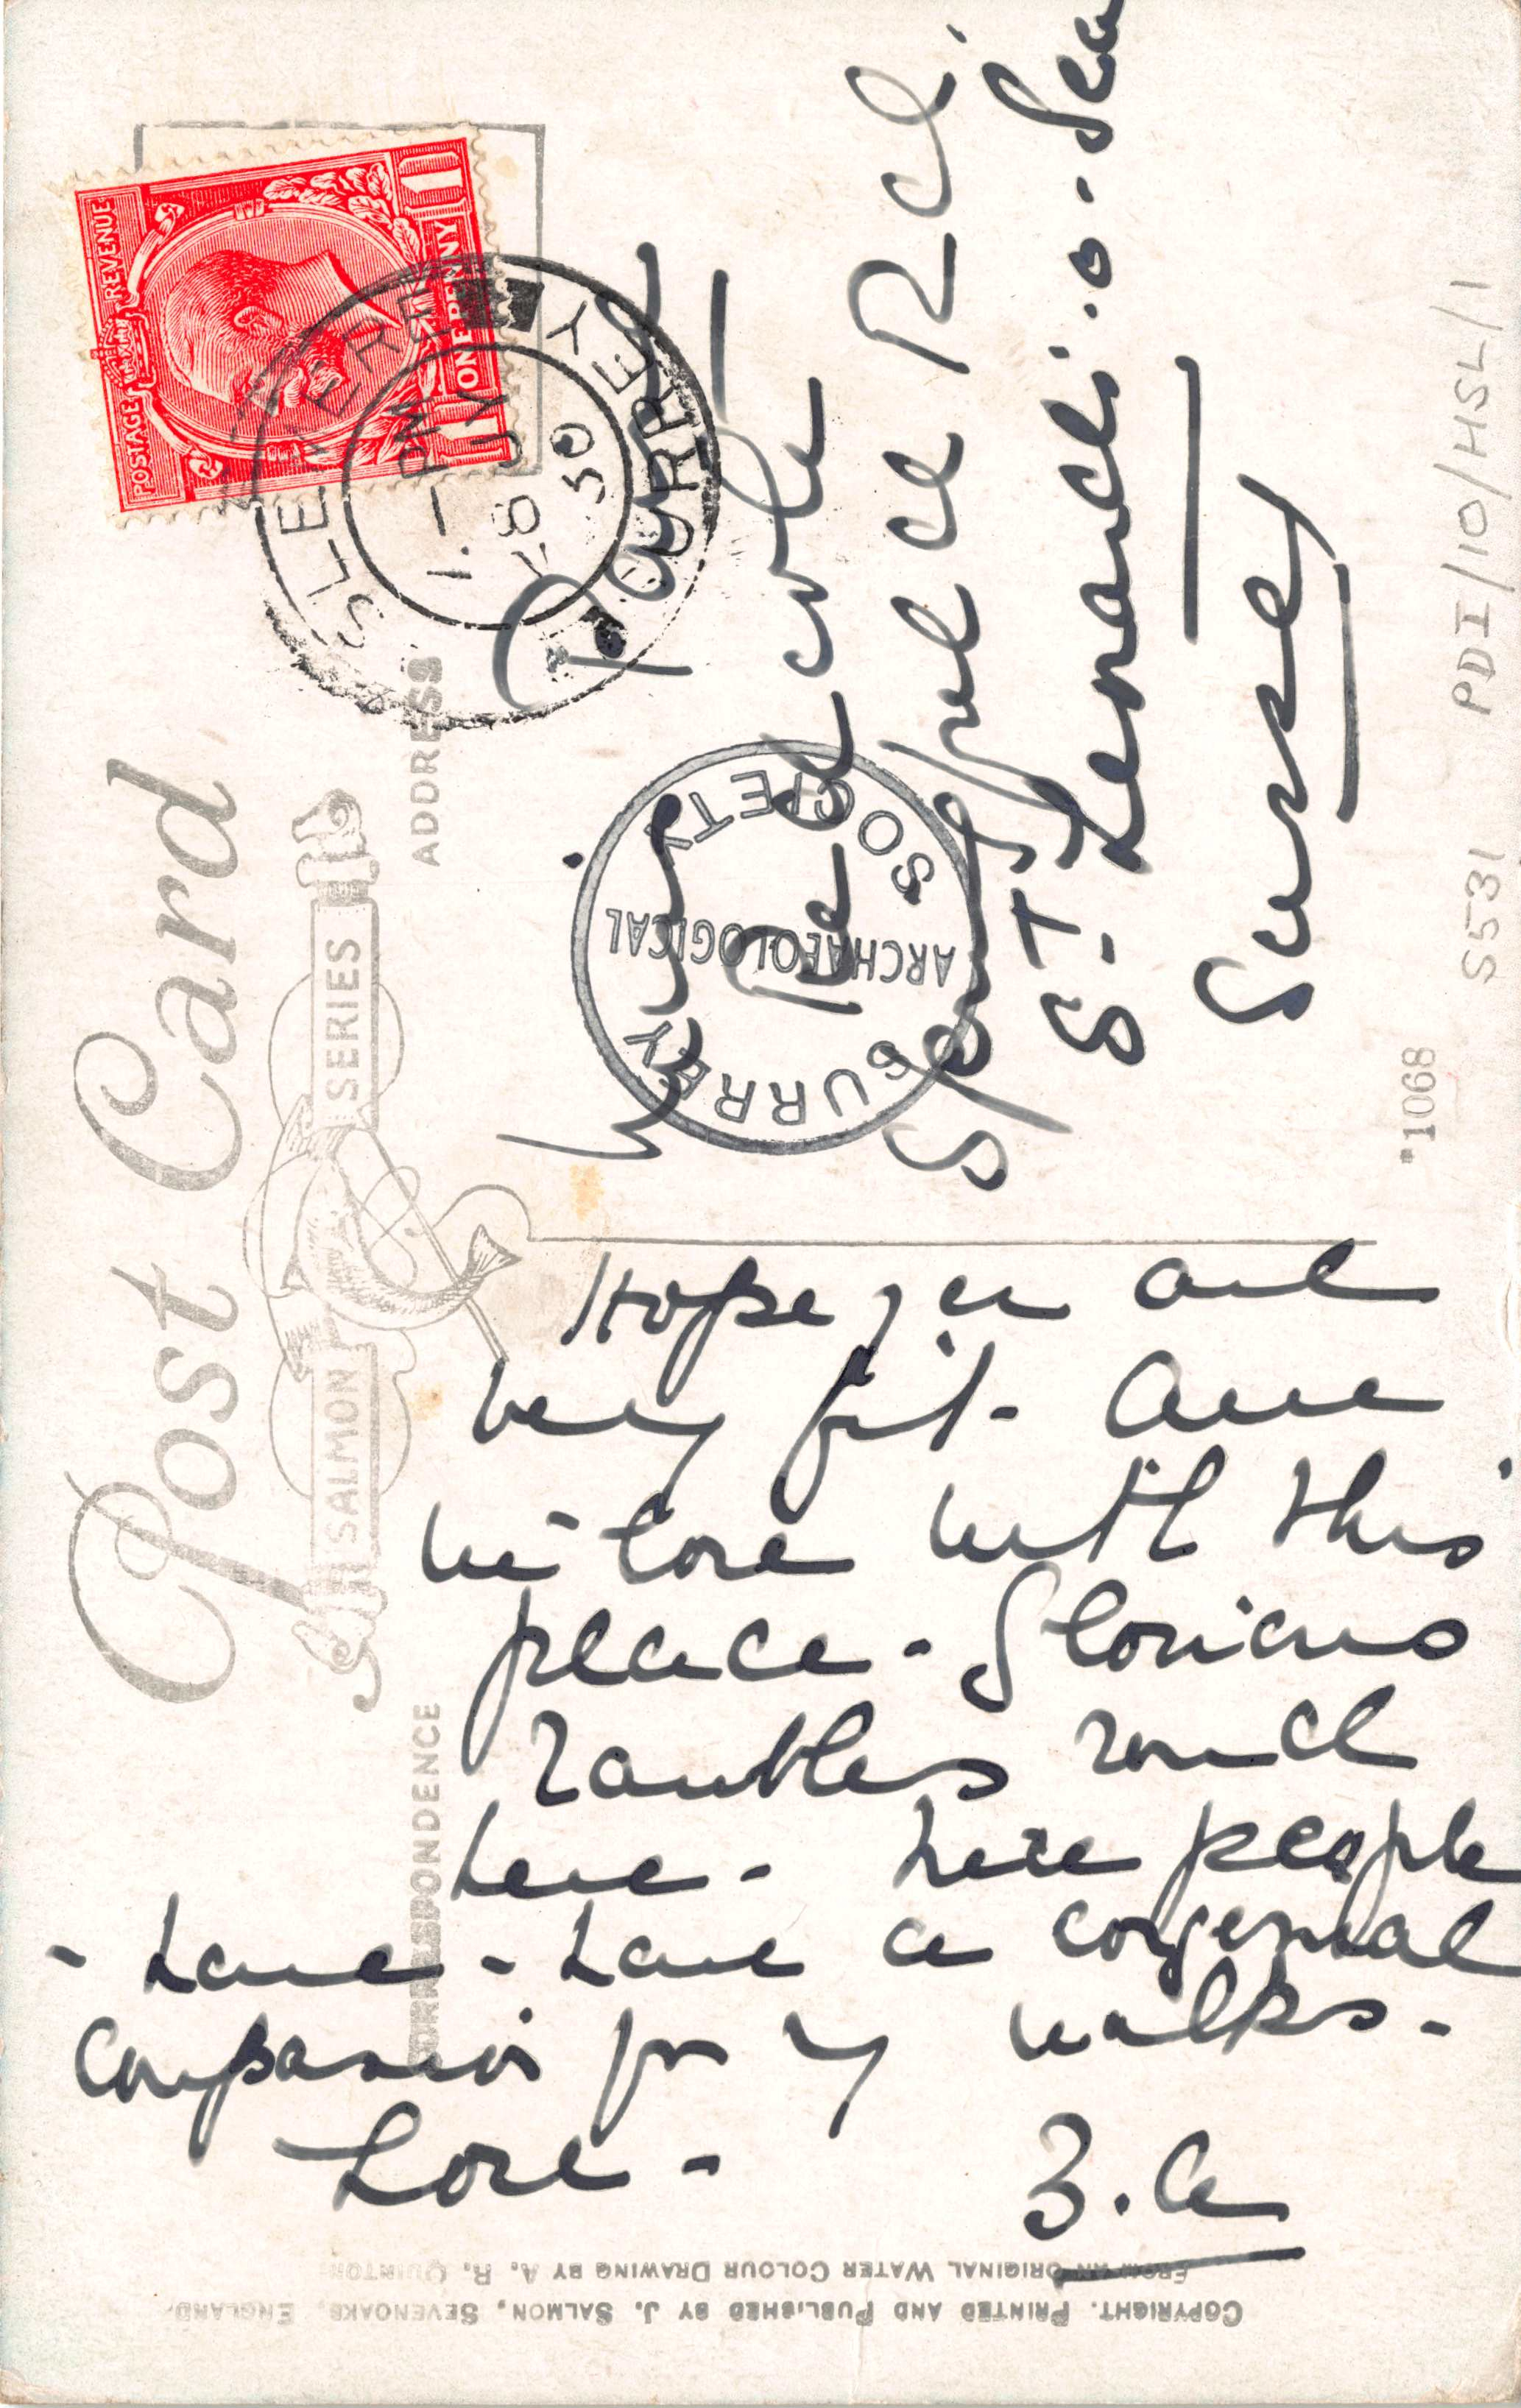 Post Card
SALMON SERIES
CORRESPONDENCE
ADDRESS
POSTAGE REVENUE
ONE PENNY
HASLEMERE
1 - PM
28 JY
30
SURREY
Hope you are
very fit - Am
in love with this
place - Glorious
rambles round
here - here people
- have - have a congenial
companion for my walks -
Love -
B. A
Miss Payne
Sea
St Leonards-o-Sea
Sussex
SURREY
ARCHAEOLOGICAL
SOCIETY
*1068
S531 PDI/10/HSL/1
FROM AN ORIGINAL WATER COLOUR DRAWING BY A. R. QUINTON
COPYRIGHT. PRINTED AND PUBLISHED BY J. SALMON, SEVENOAKS, ENGLAND